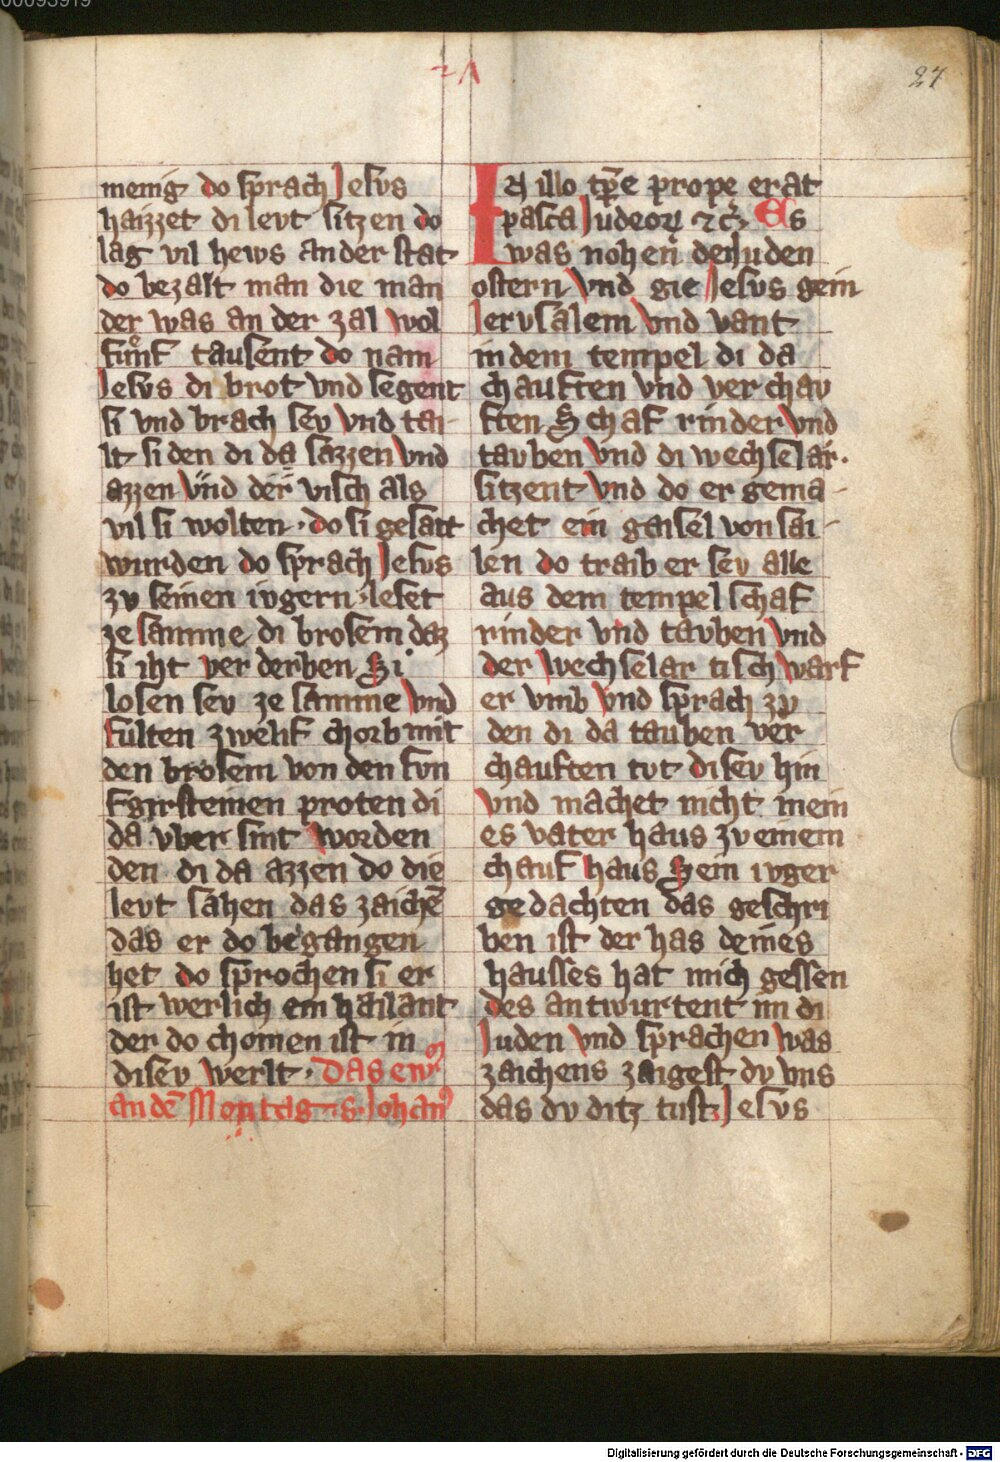 27
menig do sprach Jesus
haizzet di levt sitzen do
lag vil hews an der stat
do bezalt man die man
der was an der zal wol
fumf tausent do nam
Jesvs di brot vnd segent
si vnd brach sev vnd tai
lt si den di da sazzen vnd
azzen vnd der visch als
vil si wolten · do si gesatt
wurden do sprach Jesvs
zv seinen ivgern · leset
ze samme di brosem daz
si iht ver derben Si
losen sev ze samme vnd
fulten zwelf chorb mit
den brosem von den fvn
f girsteinen proten di
da vber sint worden
den di da azzen do die
levt sahen das zaichē
das er do begangen
het do sprochen si er
ist werlich ein hailant
der do chomen ist in
disev werlt · Das ew
an dē Montag · s · Johan
In illo tp̄e prope erat
pasca Judeoꝝ ⁊c̄ Es
was nohen der Juden
ostern vnd gie Jesvs gein
Jervsalem vnd vant
in dem tempel di da
chauften vnd ver chav
ften Schaf rinder vnd
tavben vnd di wechselar ·
sitzent vnd do er gema
chet ein gaisel von sai
len do traib er sev alle
aus dem tempel schaf
rinder vnd tavben vnd
der wechselar tisch warf
er vmb vnd sprach zv
den di da tauben ver
chauften tvt disev hin
vnd machet nicht mein
es vater haus zv einem
chauf haus Sein ivger
gedachten das geschri
ben ist der has deines
hausses hat mich gessen
des antwurtent im di
Juden vnd sprachen was
zaichens zaigest dv vns
das dv ditz tust Jesvs
Digitalisierung gefördert durch die Deutsche Forschungsgemeinschaft - DFG